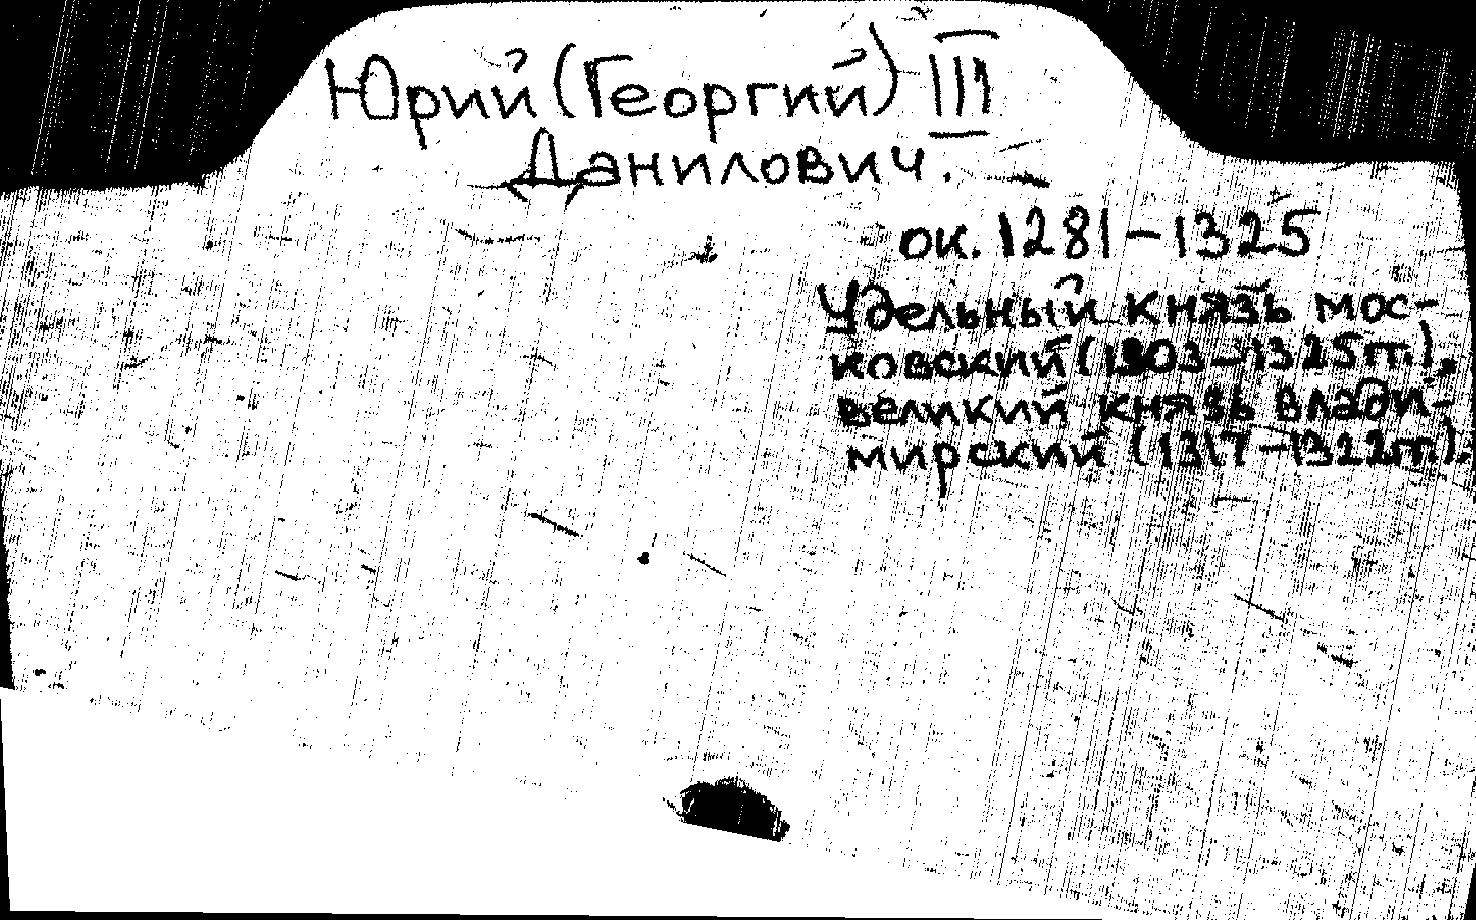 Юрий (Георгий) III
Данилович.
ок. 1281-1325
Удельный князь мос-
ковский (1303-1325гг),
великий князь влади-
мирский (1317-1322гг).